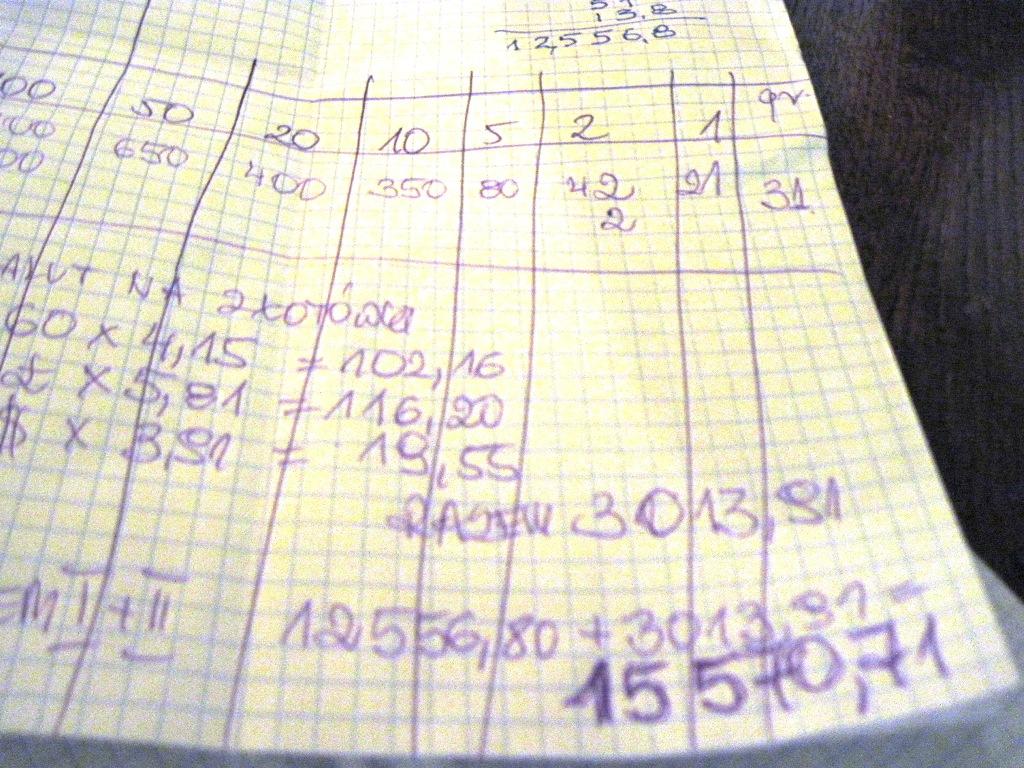 13.8
12,556,8
00 50 20 10 5 2 1 gr.
00 650 400 350 80 42 21 31
00 2
NA złotówki
60 x 4,15 = 102,16
£ x 5,81 = 116,20
$ x 3,91 = 19,55
RAZEM 3013,91
EM I + II 12556,80 + 3013,91 =
15570,71